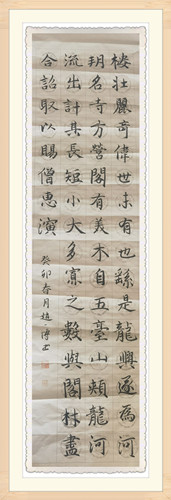 楼壮丽奇伟世未有也繇是龍興遂為河
朔名寺方營閣有美木自五臺山頰龍河
流出計其長短小大多寡之數與閣材盡
合詔取以賜僧惠演
癸卯春月趙